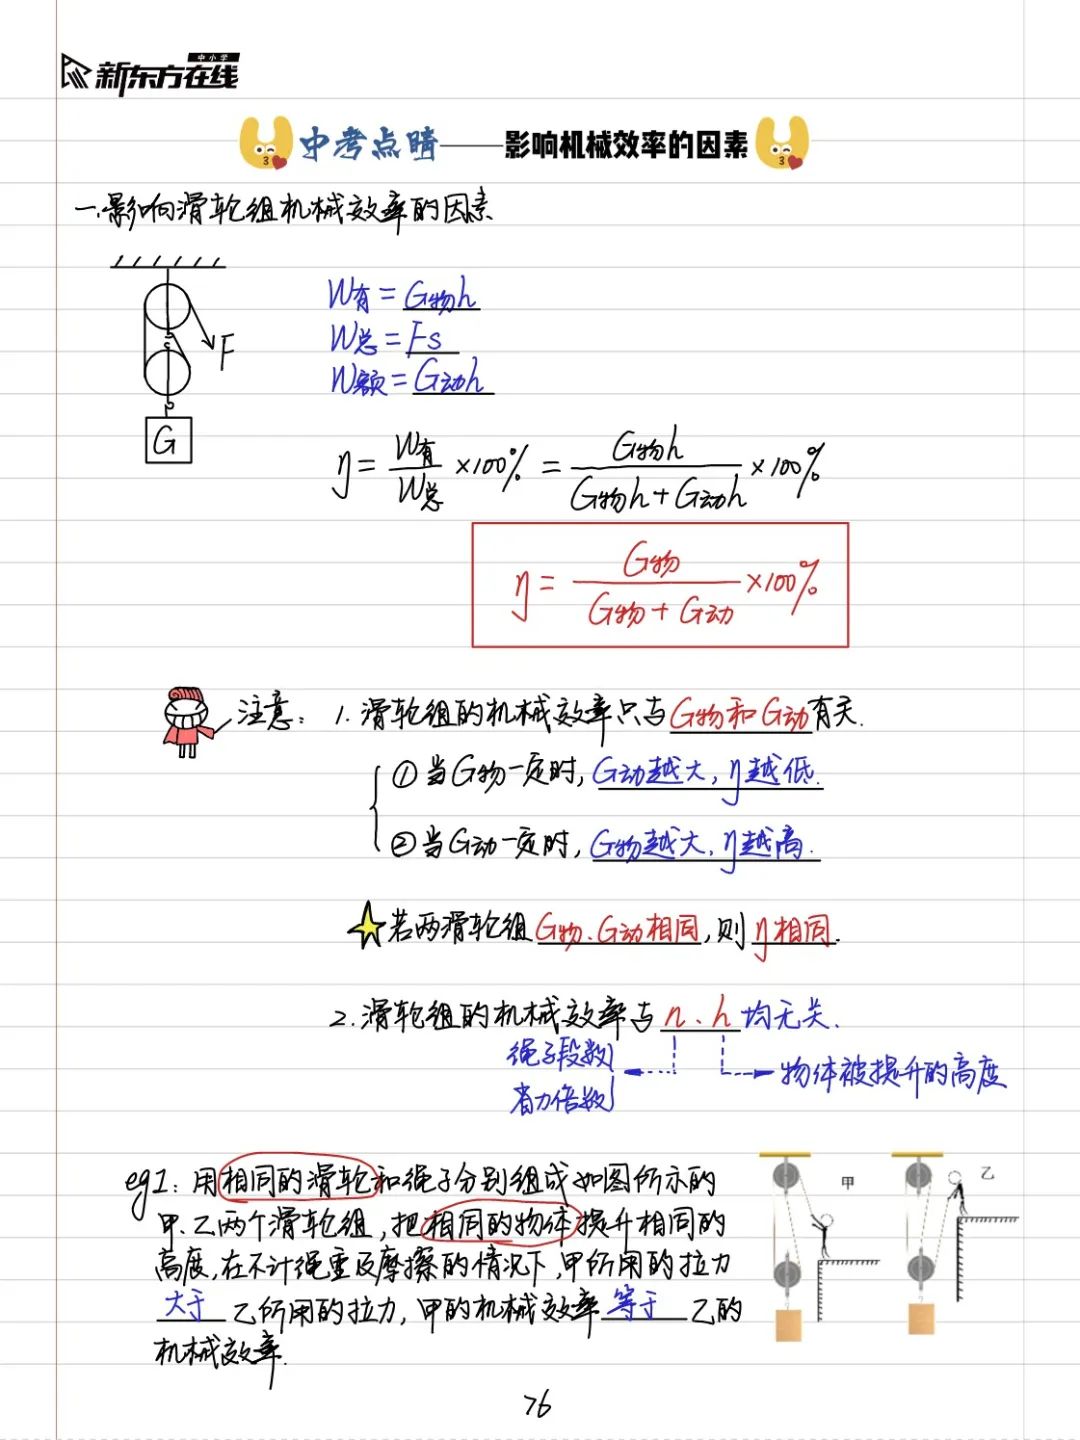 中小学
新东方在线
中考点睛——影响机械效率的因素
一.影响滑轮组机械效率的因素
F
G
W有=G物h
W总=Fs
W额=G动h
η=W有/W总×100%=G物h/(G物h+G动h)×100%
η=G物/(G物+G动)×100%
注意：1.滑轮组的机械效率只与G物和G动有关.
①当G物一定时,G动越大,η越低.
②当G动一定时,G物越大,η越高.
若两滑轮组G物、G动相同,则η相同.
2.滑轮组的机械效率与n、h均无关.
绳子段数
省力倍数
物体被提升的高度
eg1:用相同的滑轮和绳子分别组成如图所示的
甲、乙两个滑轮组,把相同的物体提升相同的
高度,在不计绳重及摩擦的情况下,甲所用的拉力
大于乙所用的拉力,甲的机械效率等于乙的
机械效率.
甲
乙
76